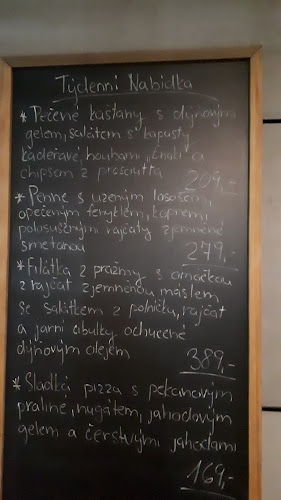 Týdenní Nabídka
* Pečené kaštany s dýňovým
gelem, salátem s kapusty
kadeřavé, houbami „Enoki" a
chipsem z prosciutta
209,-
* Penne s uzeným lososem,
opečeným fenyklem, kapremi,
polosušenými rajčaty zjemněné
smetanou
279,-
* Filátka z pražmy s omáčkou
z rajčat zjemněnou máslem
se salátkem z polníčku, rajčat
a jarní cibulky ochucené
dýňovým olejem
389,-
* Sladká pizza s pekanovým
praliné, nugátem, jahodovým
gelem a čerstvými jahodami
169,-